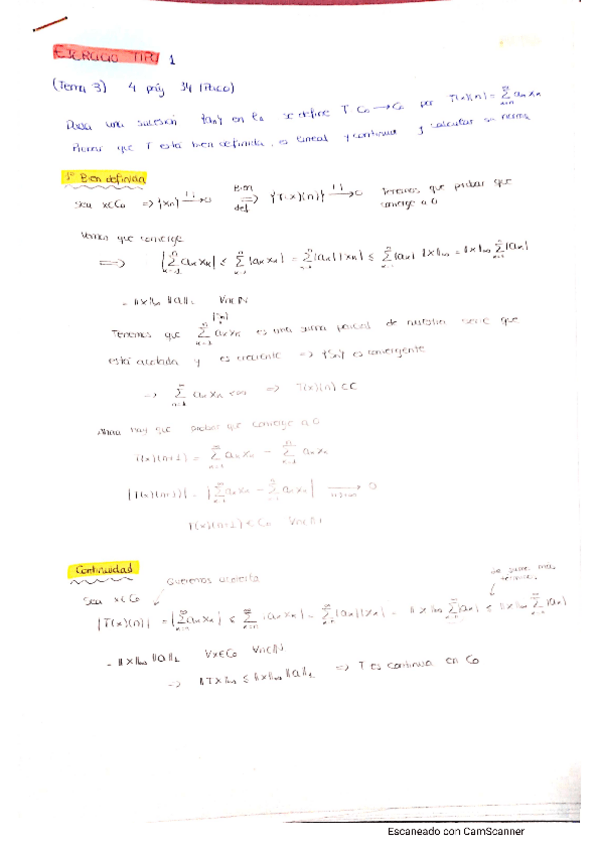 EJERCICIO TIPO 1
(Tema 3) 4 pág 34 (Paco)
Dada una sucesión {an} en l1 se define T C0→C0 por T(x)(n) = ∑ ak xk
Probar que T está bien definida, es lineal y continua y calcular su norma
1º Bien definida
Sea x∈C0 ⇒ {xn} → 0 ⇒ {T(x)(n)} → 0 Tenemos que probar que
Bien def
converge a 0
Veamos que converge
⇒ |∑ ak xk| ≤ ∑ |ak xk| = ∑ |ak| |xk| ≤ ∑ |ak| ‖x‖∞ = ‖x‖∞ ∑ |ak|
= ‖x‖∞ ‖a‖1 ∀n∈N
Tenemos que ∑ ak xk es una suma parcial de nuestra serie que
está acotada y es creciente ⇒ {Sn} es convergente
⇒ ∑ ak xk <∞ ⇒ T(x)(n) ∈ C
Ahora hay que probar que converge a 0
T(x)(n+1) = ∑ ak xk − ∑ ak xk
|T(x)(n+1)| = |∑ ak xk − ∑ ak xk| → 0
T(x)(n+1) ∈ C0 ∀n∈N
Continuidad
Queremos acotarla
Sea x∈C0
|T(x)(n)| = |∑ ak xk| ≤ ∑ |ak xk| = ∑ |ak| |xk| = ‖x‖∞ ∑ |ak| ≤ ‖x‖∞ ∑ |ak|
= ‖x‖∞ ‖a‖1 ∀x∈C0 ∀n∈N
⇒ ‖Tx‖∞ ≤ ‖x‖∞ ‖a‖1 ⇒ T es continua en C0
Escaneado con CamScanner